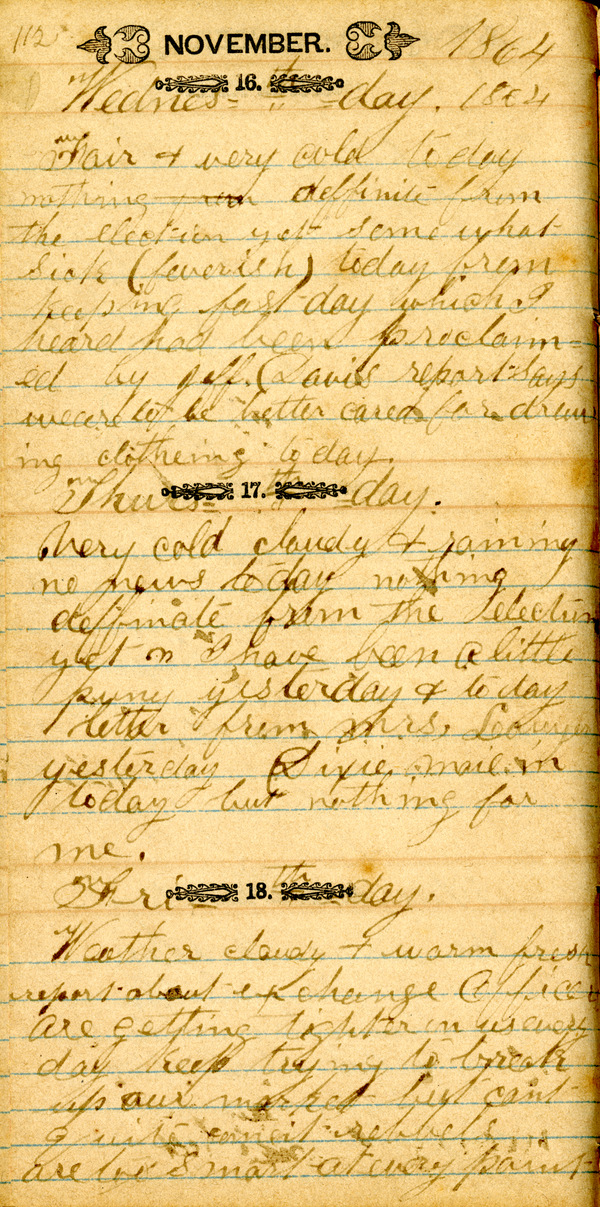 112 NOVEMBER. 1864
Wednes= 16.th =day. 1864
Fair & very cold today
nothing deffinite from
the election yet some what
sick (feverish) today from
keeping fast day which I
heard had been proclaim=
ed by Jeff. Davis report says
we are to be better cared for draw
ing clotheing today.
Thurs= 17.th =day.
Very cold cloudy & raining
no news today nothing
deffinate from the election
yet I have been a little
puny yesterday & today
letter from Mrs.
yesterday Dixie mail in
today but nothing for
me.
Fri= 18.th =day.
Weather cloudy & warm fresh
report about exchange officers
are getting tighter on us every
day keep trying to break
up our market but cant
quite come it rebbels
are too smart at every point